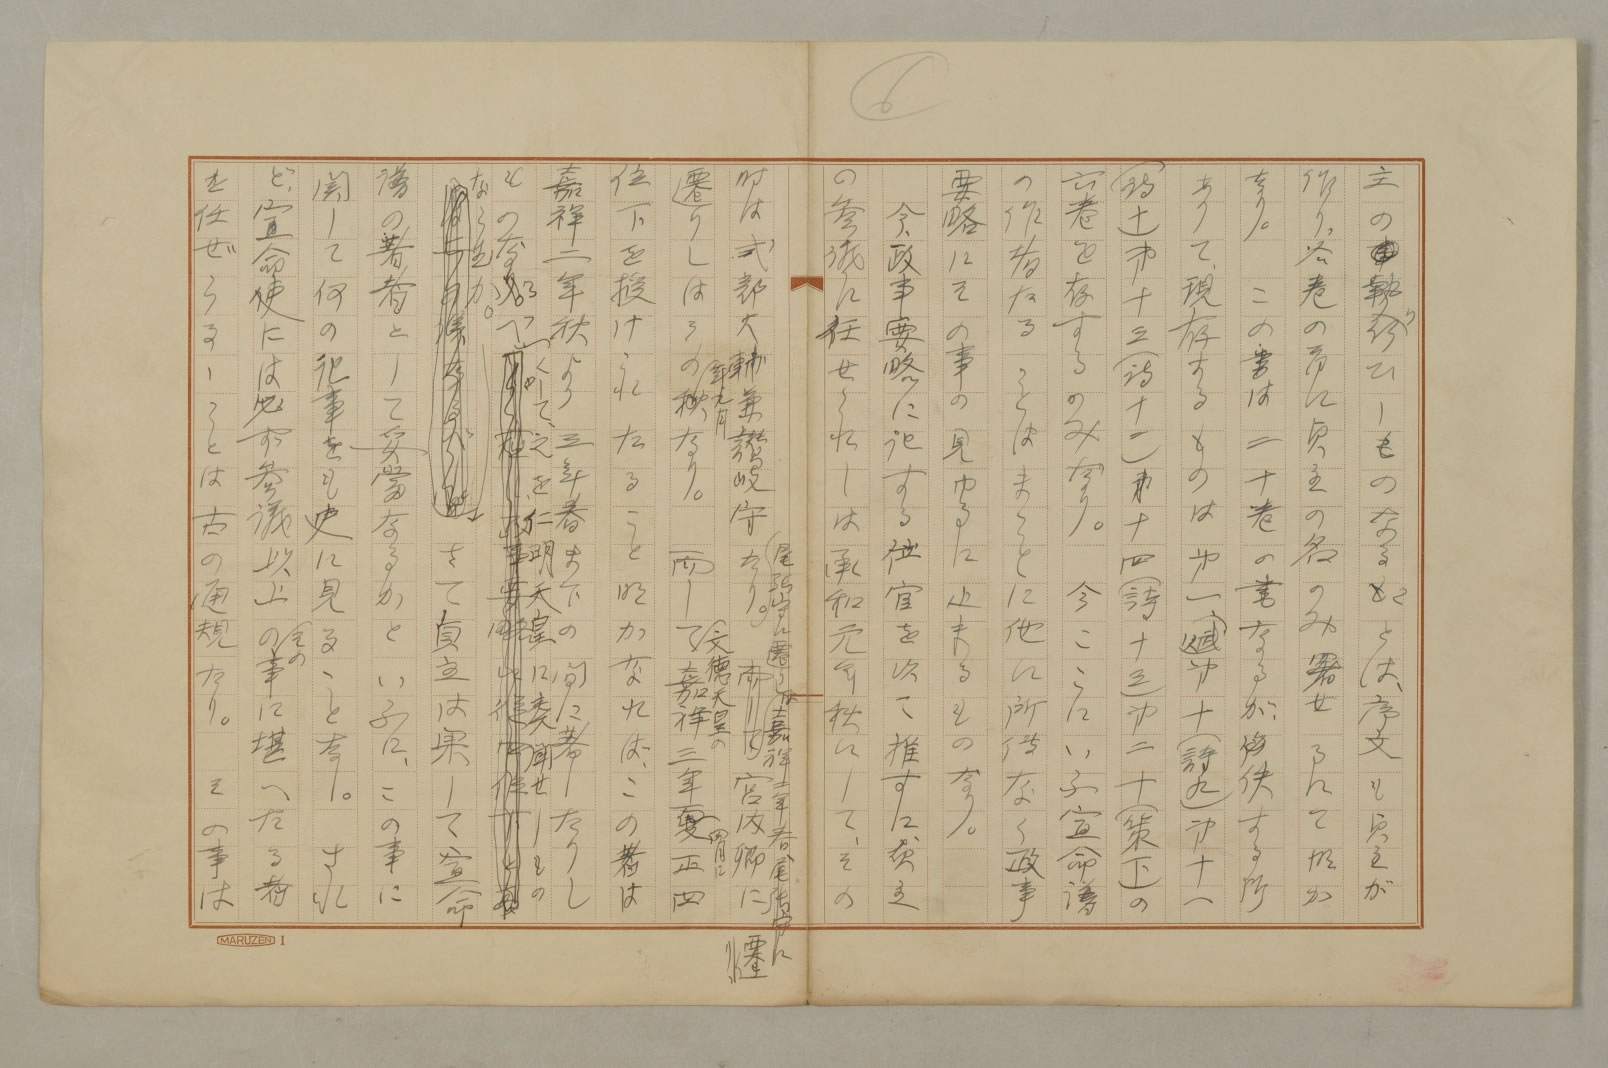 6
主の執筆せしものなること は、序文も貞主が
作り、各巻の首に貞主の名のみ署せるにて明か
なり。この書は二十巻の書なるが、散佚する所
ありて、現存するものは 第一(賦)第十(詩九)第十一
(詩十)第十三(詩十二)第十四(詩十三)第二十(策下)の
六巻を存するのみなり。 今ここにいふ宣命譜
の作者たることはまことに他に所伝なく政事
要略にその事の見ゆるに止まるものなり。
今、政事要略に記する位官を以て推すに、貞主
の参議に任ぜられしは承和元年秋にして、その
時は式部大輔兼讃岐守なり。
尾張守に遷りしは嘉祥二年春尾張守に
宮内卿に遷り
遷りしは その秋なり。 而して嘉祥三年夏正四
年元月
文徳天皇の
四月に
位下を授けられたること明かなれば、この書は
嘉祥二年秋より三年春までの間に著したりし
ものなるべくして、之を仁明天皇に奏聞せしもの
ならむか。
さて貞主は果して宣命
譜の著者として妥当なるかといふに、この事に
関して何の記事をも史に見ること無し。 され
ど、宣命使には必ず参議以上のその事に堪へたる者
を任ぜらるることは古の通規なり。 その事は
MARUZEN 1